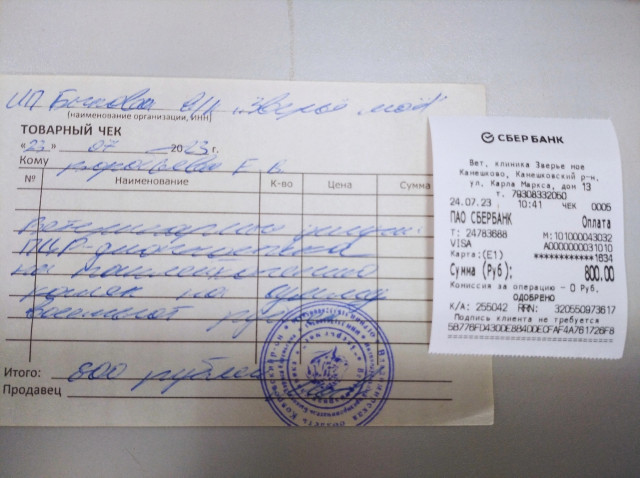 ИП Бычкова в/к "Зверьё моё"
(наименование организации, ИНН)
ТОВАРНЫЙ ЧЕК
07 2023 г.
Кому Е. В.
№ Наименование К-во Цена Сумма
Ветеринарные услуги:
ПЦР-диагностика
на панлейкопению
кошек на сумму
восемьсот руб
Итого: 800 рублей
Продавец
СБЕРБАНК
Вет. клиника Зверье мое
Камешково, Камешковский р-н,
ул. Карла Маркса, дом 13
т. 79308332060
24.07.23 10:41 ЧЕК 0005
ПАО СБЕРБАНК Оплата
T: 24783688 M:101000043032
VISA A0000000031010
Карта:(E1) ************1834
Сумма (Руб): 800.00
Комиссия за операцию – 0 Руб.
ОДОБРЕНО
К/А: 255042 RRN: 320550973617
Подпись клиента не требуется